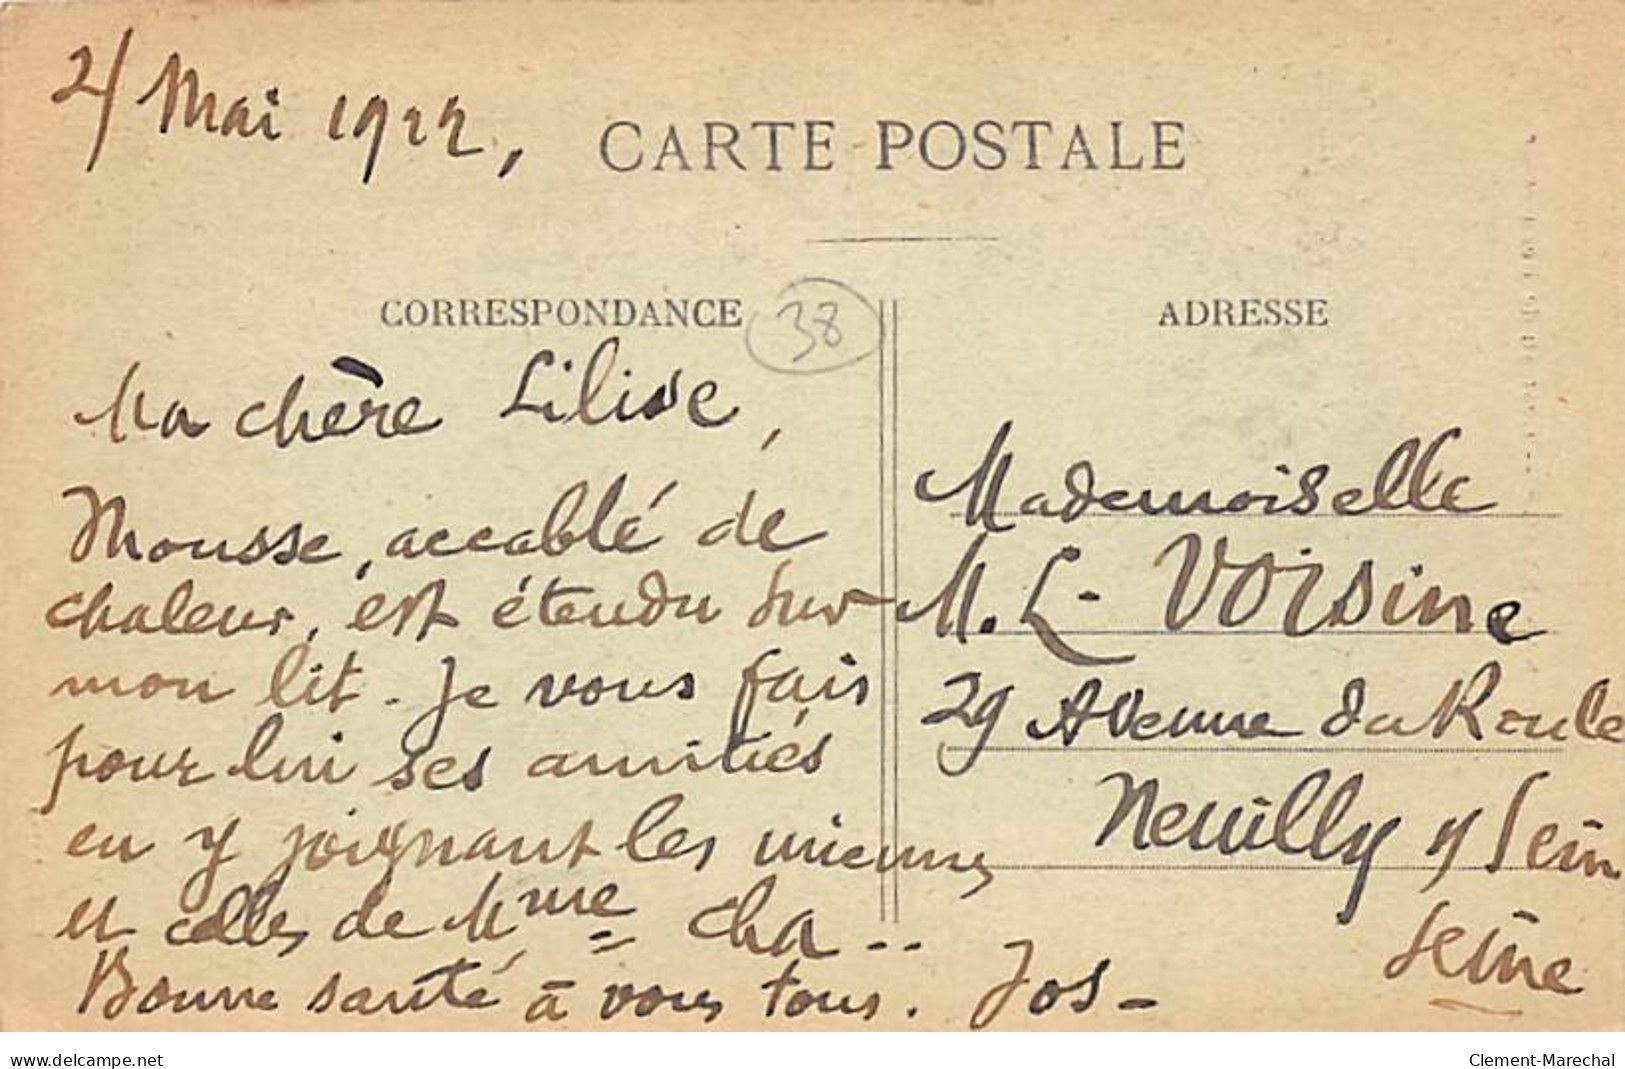 2/ Mai 1922,
CARTE POSTALE
CORRESPONDANCE
38
ADRESSE
Ma chère Lilise,
Mousse, accablé de
chaleur, est étendu sur
mon lit. Je vous fais
pour lui ses amitiés
en y joignant les miennes
et celles de Mme Cha..
Bonne santé à vous tous. Jos-
Mademoiselle
M. L. Voisine
29 Avenue du Roule
Neuilly s/ Seine
Seine
www.delcampe.net
Clement-Marechal